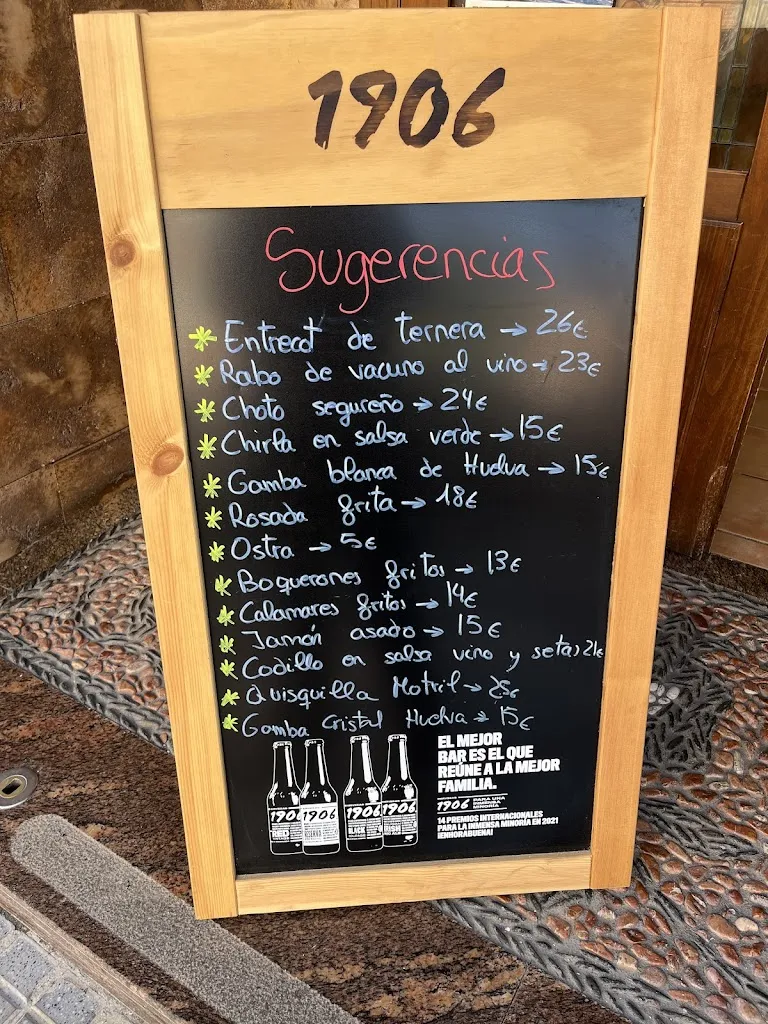 1906
Sugerencias
* Entrecot de ternera → 26€
* Rabo de vacuno al vino → 23€
* Choto segureño → 24€
* Chirla en salsa verde → 15€
* Gamba blanca de Huelva → 15€
* Rosada frita → 18€
* Ostra → 5€
* Boquerones fritos → 13€
* Calamares fritos → 14€
* Jamón asado → 15€
* Codillo en salsa vino y setas 21€
* Quisquilla Motril → 25€
* Gamba Cristal Huelva → 15€
EL MEJOR
BAR ES EL QUE
REÚNE A LA MEJOR
FAMILIA.
1906 PARA UNA
INMENSA
MINORÍA
14 PREMIOS INTERNACIONALES
PARA LA INMENSA MINORÍA EN 2021
¡ENHORABUENA!
1906 1906 1906 1906
RED RESERVA BLACK IRISH